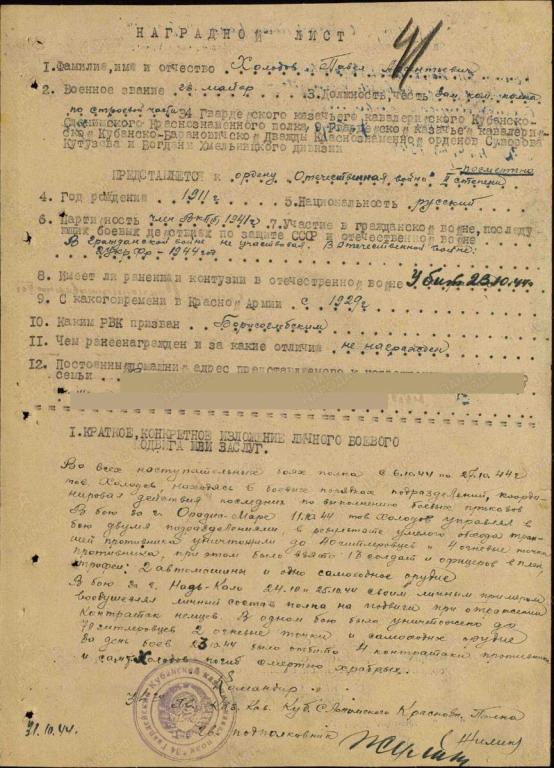 41
НАГРАДНОЙ ЛИСТ
1. Фамилия, имя и отчество Холодов Павел
2. Военное звание гв. майор 3. Должность, часть Зам. ком. полка
по строевой части 34 Гвардейского казачьего кавалерийского Кубанско-
Краснознаменного полка 9
Кубанско-Барановичской Дважды Краснознаменной орденов Суворова
Кутузова и Богдана Хмельницкого дивизии
ПРЕДСТАВЛЯЕТСЯ к ордену "Отечественная война" II степени
- посмертно
4. Год рождения 1911 г 5. Национальность русский
6. Партийность член ВКП(б) 1941 г 7. Участие в гражданской войне, последу
ющих боевых действиях по защите СССР и отечественной войне
В Гражданской войне не участвовал. В Отечественной войне:
2 Укр Фр - 1944 год
8. Имеет ли ранения и контузии в отечественной войне Убит 23.10.44
9. С какого времени в Красной Армии с 1929 г
10. Каким РВК призван Борисоглебским
11. Чем ранее награжден и за какие отличия не награжден
12. Постоянный домашний адрес представляемого к
семьи
I. КРАТКОЕ, КОНКРЕТНОЕ ИЗЛОЖЕНИЕ ЛИЧНОГО БОЕВОГО
ПОДВИГА ИЛИ ЗАСЛУГ.
Во всех наступательных боях полка с 6.10.44 по 27.10.44 г
тов. Холодов, находясь в боевых порядках подразделений, коорди-
нировал действия последних по выполнению боевых приказов
В бою за г. Орадиа-Маре 11.10.44 тов Холодов управлял в
бою двумя подразделениями, в результате умелого обхода
противника уничтожили до 40 гитлеровцев и 4 огневые точки
противника, при этом было взято 18 солдат и офицеров в плен,
трофеи: 2 автомашины и одно самоходное орудие
В бою за г. Надь-Кало 24.10 и 25.10.44 своим личным примером
воодушевлял личный состав полка на подвиги при отражении
контратак немцев. В одном бою было уничтожено до
70 гитлеровцев 2 огневые точки и самоходное орудие
за день боев 23.10.44 было отбито 4 контратаки противника
и сам Холодов погиб смертью храбрых.
Командир
Каз. Кав. Куб. Краснозн. Полка
31.10.44. подполковник (Жилин)